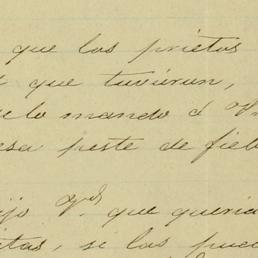 que los prietos
que tuvieran,
lo mando á V
esa peste de fieb
ijo Vd. que queria
itas, si las pued